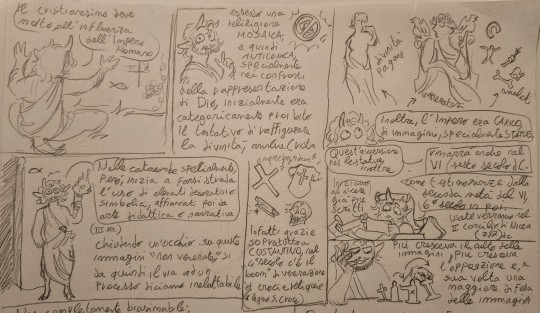 Il cristianesimo deve
molto all'influenza
dell'Impero
Romano
essendo una
religione
MOSAICA,
e quindi
ANICONICA,
specialmente
nei confronti
della rappresentazione
di Dio, inizialmente era
categoricamente proibito
il tentativo di raffigurare
la divinità
divinità
pagane
IMPERATORI
amuleti
Inoltre, l'Impero era CARICO
di immagini, specialmente STATUE
Quest'avversione
per le statue,
inoltre,
rimarrà anche nel
VI (sesto secolo d.C.
Nelle catacombe specialmente,
però, inizia a farsi strada
l'uso di elementi decorativi e
simbolici, affiancati poi da
arte didattica e narrativa
(III sec.)
chiudendo un'occhio su queste
immagini "non venerate" si
da quindi il via ad un
processo diciamo ineluttabile
Infatti grazie
soprattutto a
COSTANTINO, nel
4° secolo c'è il
boom di
di croci e reliquie
legno S. Croce
come testimonianze dalla
seconda metà del VI,
6° secolo in poi
II concilio di Nicea
(787) dc
Più cresceva il culto delle
immagini, più cresceva
l'opposizione e, a
sua volta una
maggiore difesa
delle immagini
completamente biasimabile: